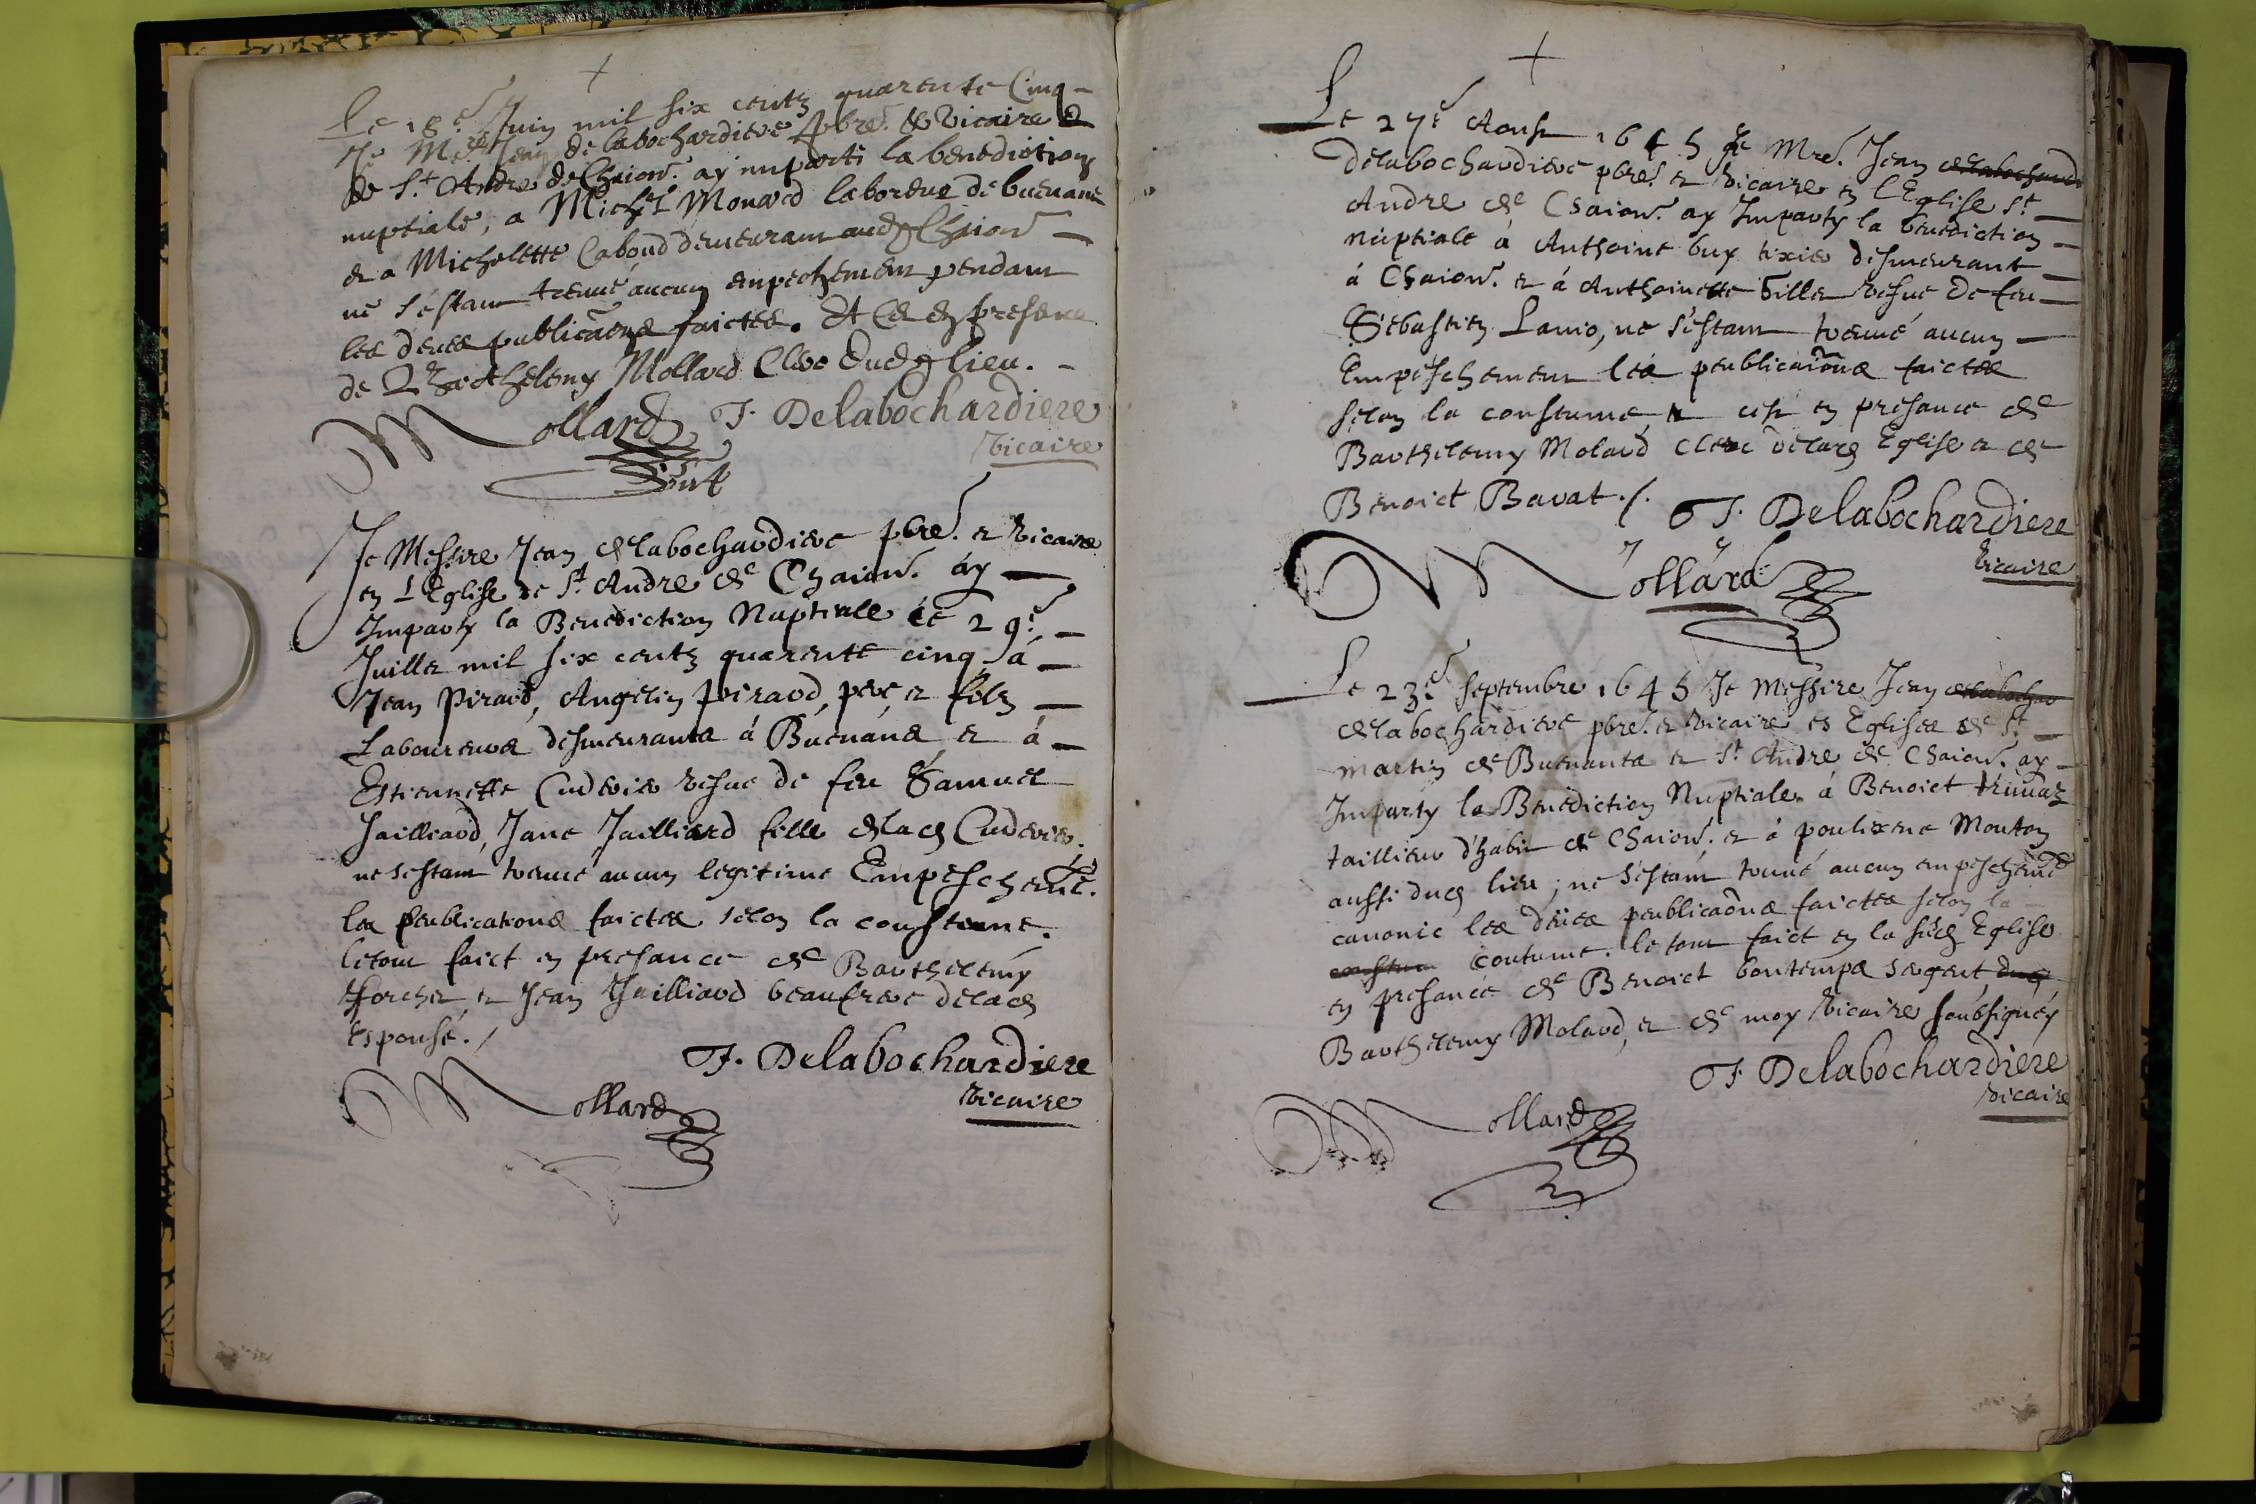 Le 18e Juin mil six centz quarente Cinq
Je Mre Jean delabochardiere pbre et vicaire
de St Andre de Chaion. ay imparti la benediction
nuptiale, a Michel Monard laboreur de buenant
et a Michelette Caboud demeurant aud Chaion
ne s'estant treuué aucun enpechement pendant
les deues publications faictes. Et Ce en presence
de Barthelemy Mollard Clerc dud lieu.
Mollard J. Delabochardiere
vicaire
Je Messire Jean delabochardiere pbre. et vicaire
en L'Eglise de St Andre de Chaion. ay
Imparty la Benediction Nuptiale le 29e
Juillet mil six centz quarente cinq á
Jean Piraud, Angelin Piraud, pere, et filz
Laboureurs desmeurants á Buenans et á
Estiennette Cuderier vesue de feu Samuel
Jailliard, Jane Jailliard fille delad Cuderier.
ne sestant treuué aucun legitime Empeschemt.
les publications faictes selon la coustume.
letout faict en presance de Barthelemy
forchet, et Jean Jailliard beaufrere delad
Espouse./
J. Delabochardiere
Mollard vicaire
Le 27e Aoust 1645 Je Mre. Jean delabochardi
Delabochardiere pbre. et vicaire en l'Eglise St
Andre de Chaion. ay Imparty la benediction
nuptiale á Anthoine buy tixier desmeurant
á Chaion. et á Anthoinette billet vesue de feu
Sebastien Lanio, ne s'estant treuué aucun
Empeschement les publications faictes
selon la coustume, et cest en presance de
Barthelemy Molard clerc delad Eglise et de
Benoict Bavat./. J. Delabochardiere
Mollard vicaire
Le 23e septembre 1645 Je Messire Jean delabochar
delabochardiere pbre. et vicaire es Eglises de St
martin de Buenants et St Andre de Chaion. ay
Imparty la Benediction Nuptiale á Benoict
taillieur d'habit de Chaion. et á poulixene Mouton
aussi dud lieu; ne s'estant treuué aucun empeschemt
canonic les deües publications faictes selon la
coustum coutume. le tout faict en la sud Eglise
en presance de Benoict bontemps sergent, dud
Barthelemy Molard, et de moy vicaire soubsigney
J. Delabochardiere
Mollard vicaire